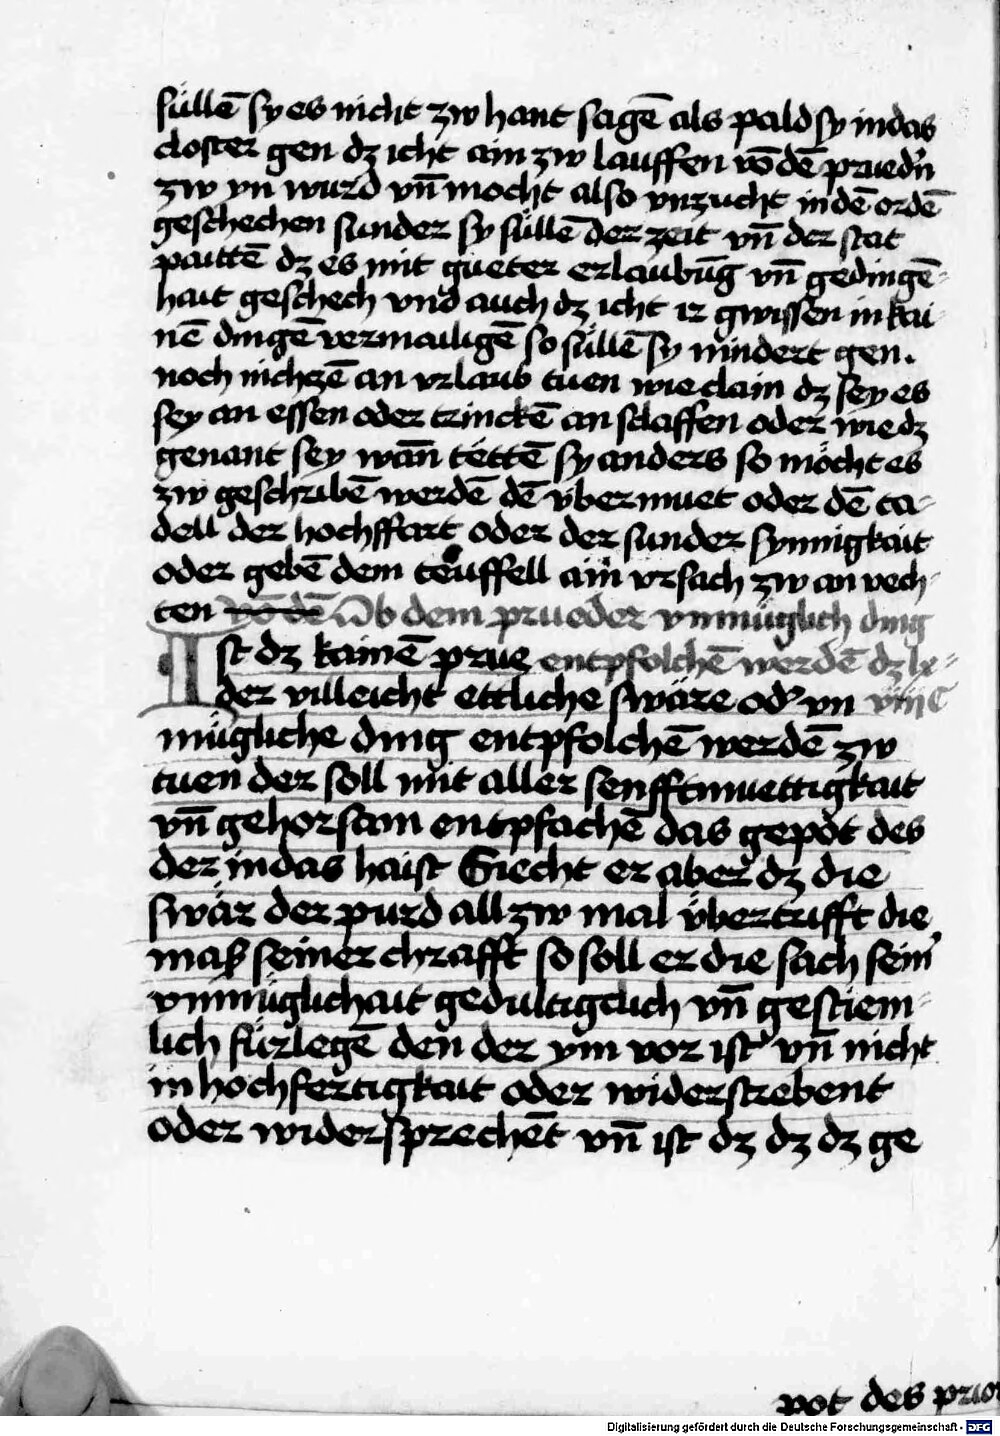 süllē sy es nicht zw hant sagē als pald sy in das
closter gen dz icht ain zw lauffen vō dē pruedn̄
zw yn wurd vn̄ mocht also vnzucht in dē ordē
geschechen sunder sy süllē der zeit vn̄ der stat
paittē dz es mit gueter erlaubūg vn̄ gedingē-
hait geschech vnd auch dz icht ir gwissen in kai-
nē dingē vermailigē so süllē sy nindert gen.
noch nichzē an vrlaub tuen wie clain dz sey es
sey an essen oder trinckē an slaffen oder wie dz
genant sey wan̄ tettē sy anders so möcht es
zw geschribē werdē dē vbermuet oder dē ta-
dell der hochffart oder der sunder synnigkait
oder gebē dem teuffell ain vrsach zw an vech-
ten vō dē Ob dem prueder vnmüglich ding
Ist dz kainē prue entpfolchē werdē dz lx-
der villeicht ettliche swäre od' vn viijC
mügliche ding entpfolchē werdē zw
tuen der soll mit aller senfftmuettigkait
vn̄ gehorsam entpfachē das gepot des
der in das haist Siecht er aber dz die
swär der purd all zw mal vbertrifft die
maß seiner chrafft so soll er die sach sein'
vnmüglichait gedultigclich vn̄ gestiem-
lich fürlegē den der ym vor ist vn̄ nicht
in hochfertigkait oder widerstrebent
oder widersprechēt vn̄ ist dz dz dz ge
pot des prior
Digitalisierung gefördert durch die Deutsche Forschungsgemeinschaft - DFG